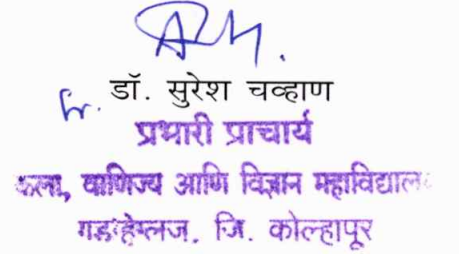 डॉ. सुरेश चव्हाण
प्रभारी प्राचार्य
कला, वाणिज्य आणि विज्ञान महाविद्यालय
गडहिंग्लज. जि. कोल्हापूर